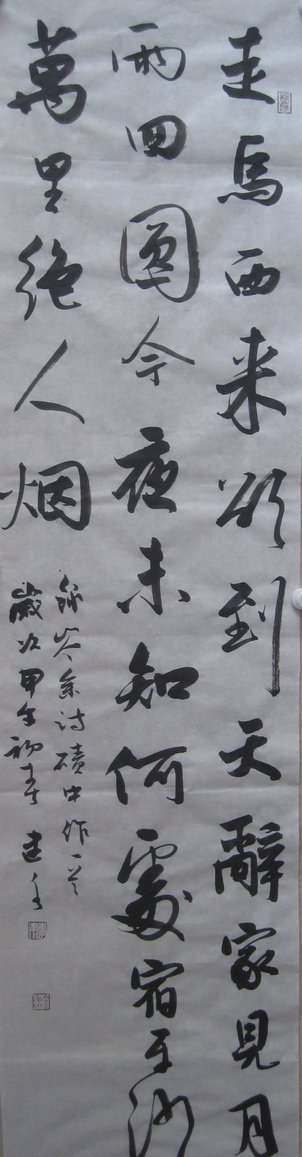 走馬西来欲到天辭家見月
兩回圓今夜未知何處宿平沙
萬里絶人烟
錄岑參詩磧中作一首
歲次甲午初春建